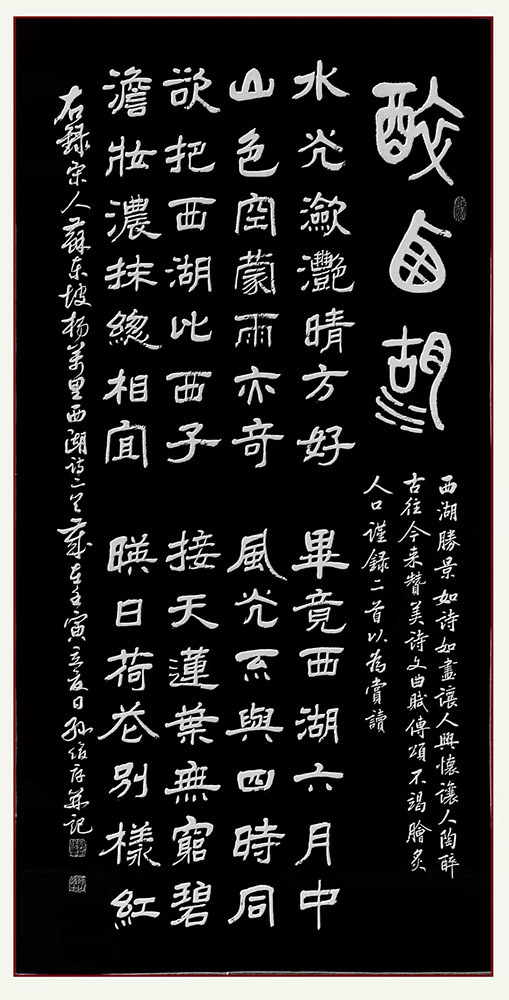 醉西湖
西湖勝景如詩如畫讓人興懷讓人陶醉
古往今来贊美詩文曲賦傳頌不竭膾炙
人口謹録二首以為賞讀
水光瀲灩晴方好
山色空蒙雨亦奇
欲把西湖比西子
澹妝濃抹緫相宜
畢竟西湖六月中
風光不與四時同
接天蓮葉無窮碧
暎日荷花別樣紅
右録宋人蘇東坡楊萬里西湖詩二首歲在壬寅立夏日孫并記